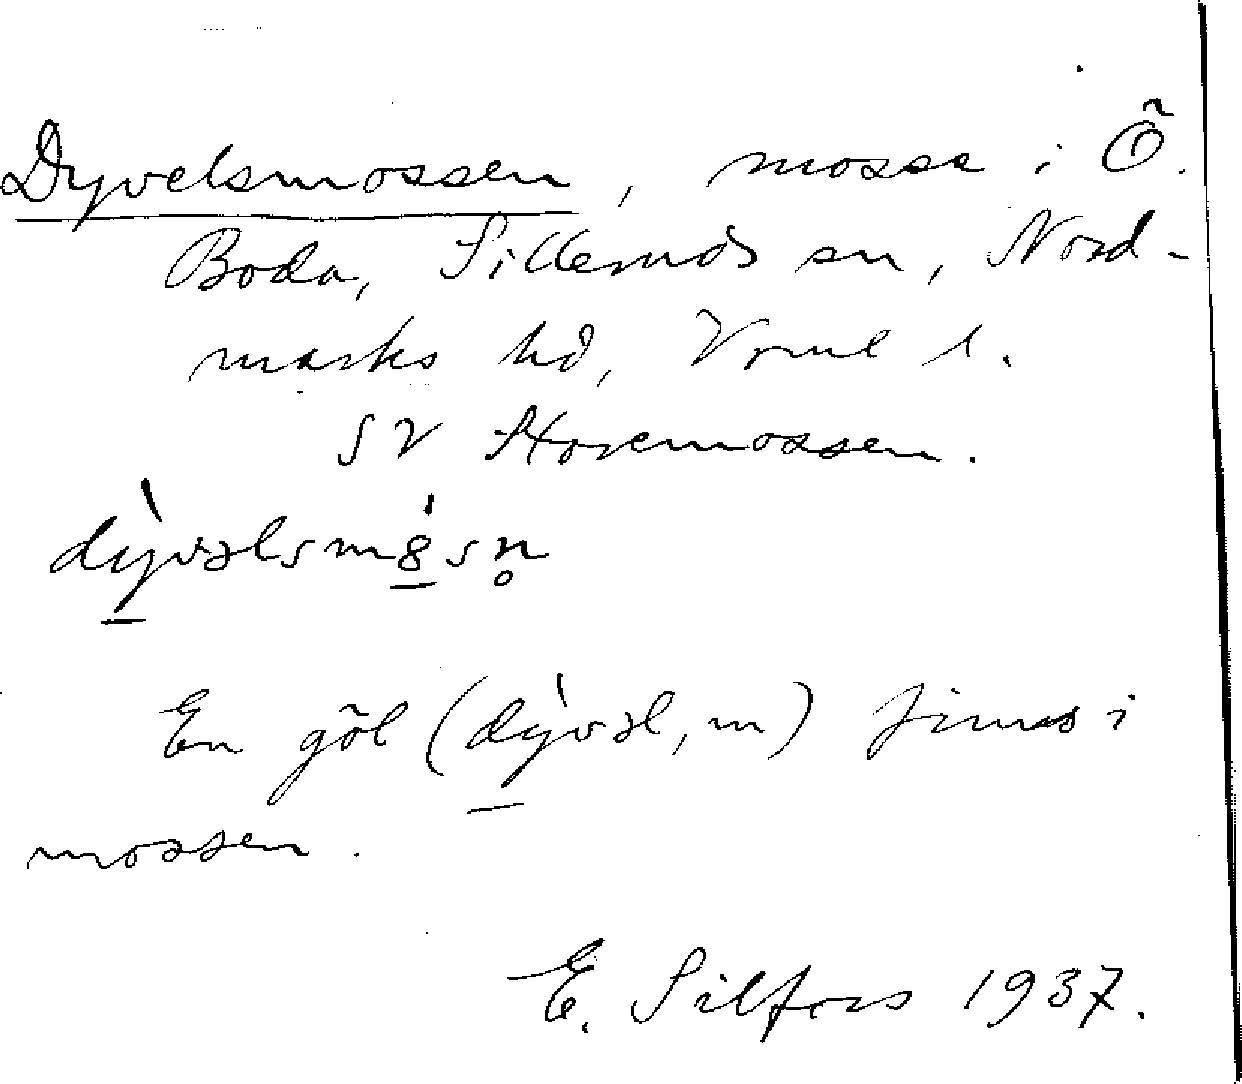 Dyvelsmossen, mosse i Ö.
Boda, Silleruds sn, Nord-
marks hd, Vrml l.
SV Storemossen.
dỳ̠vəlsmȣ̠̀sn̥
En göl (dỳ̠vəl, m) finns i
mossen.
E. Silfors 1937.